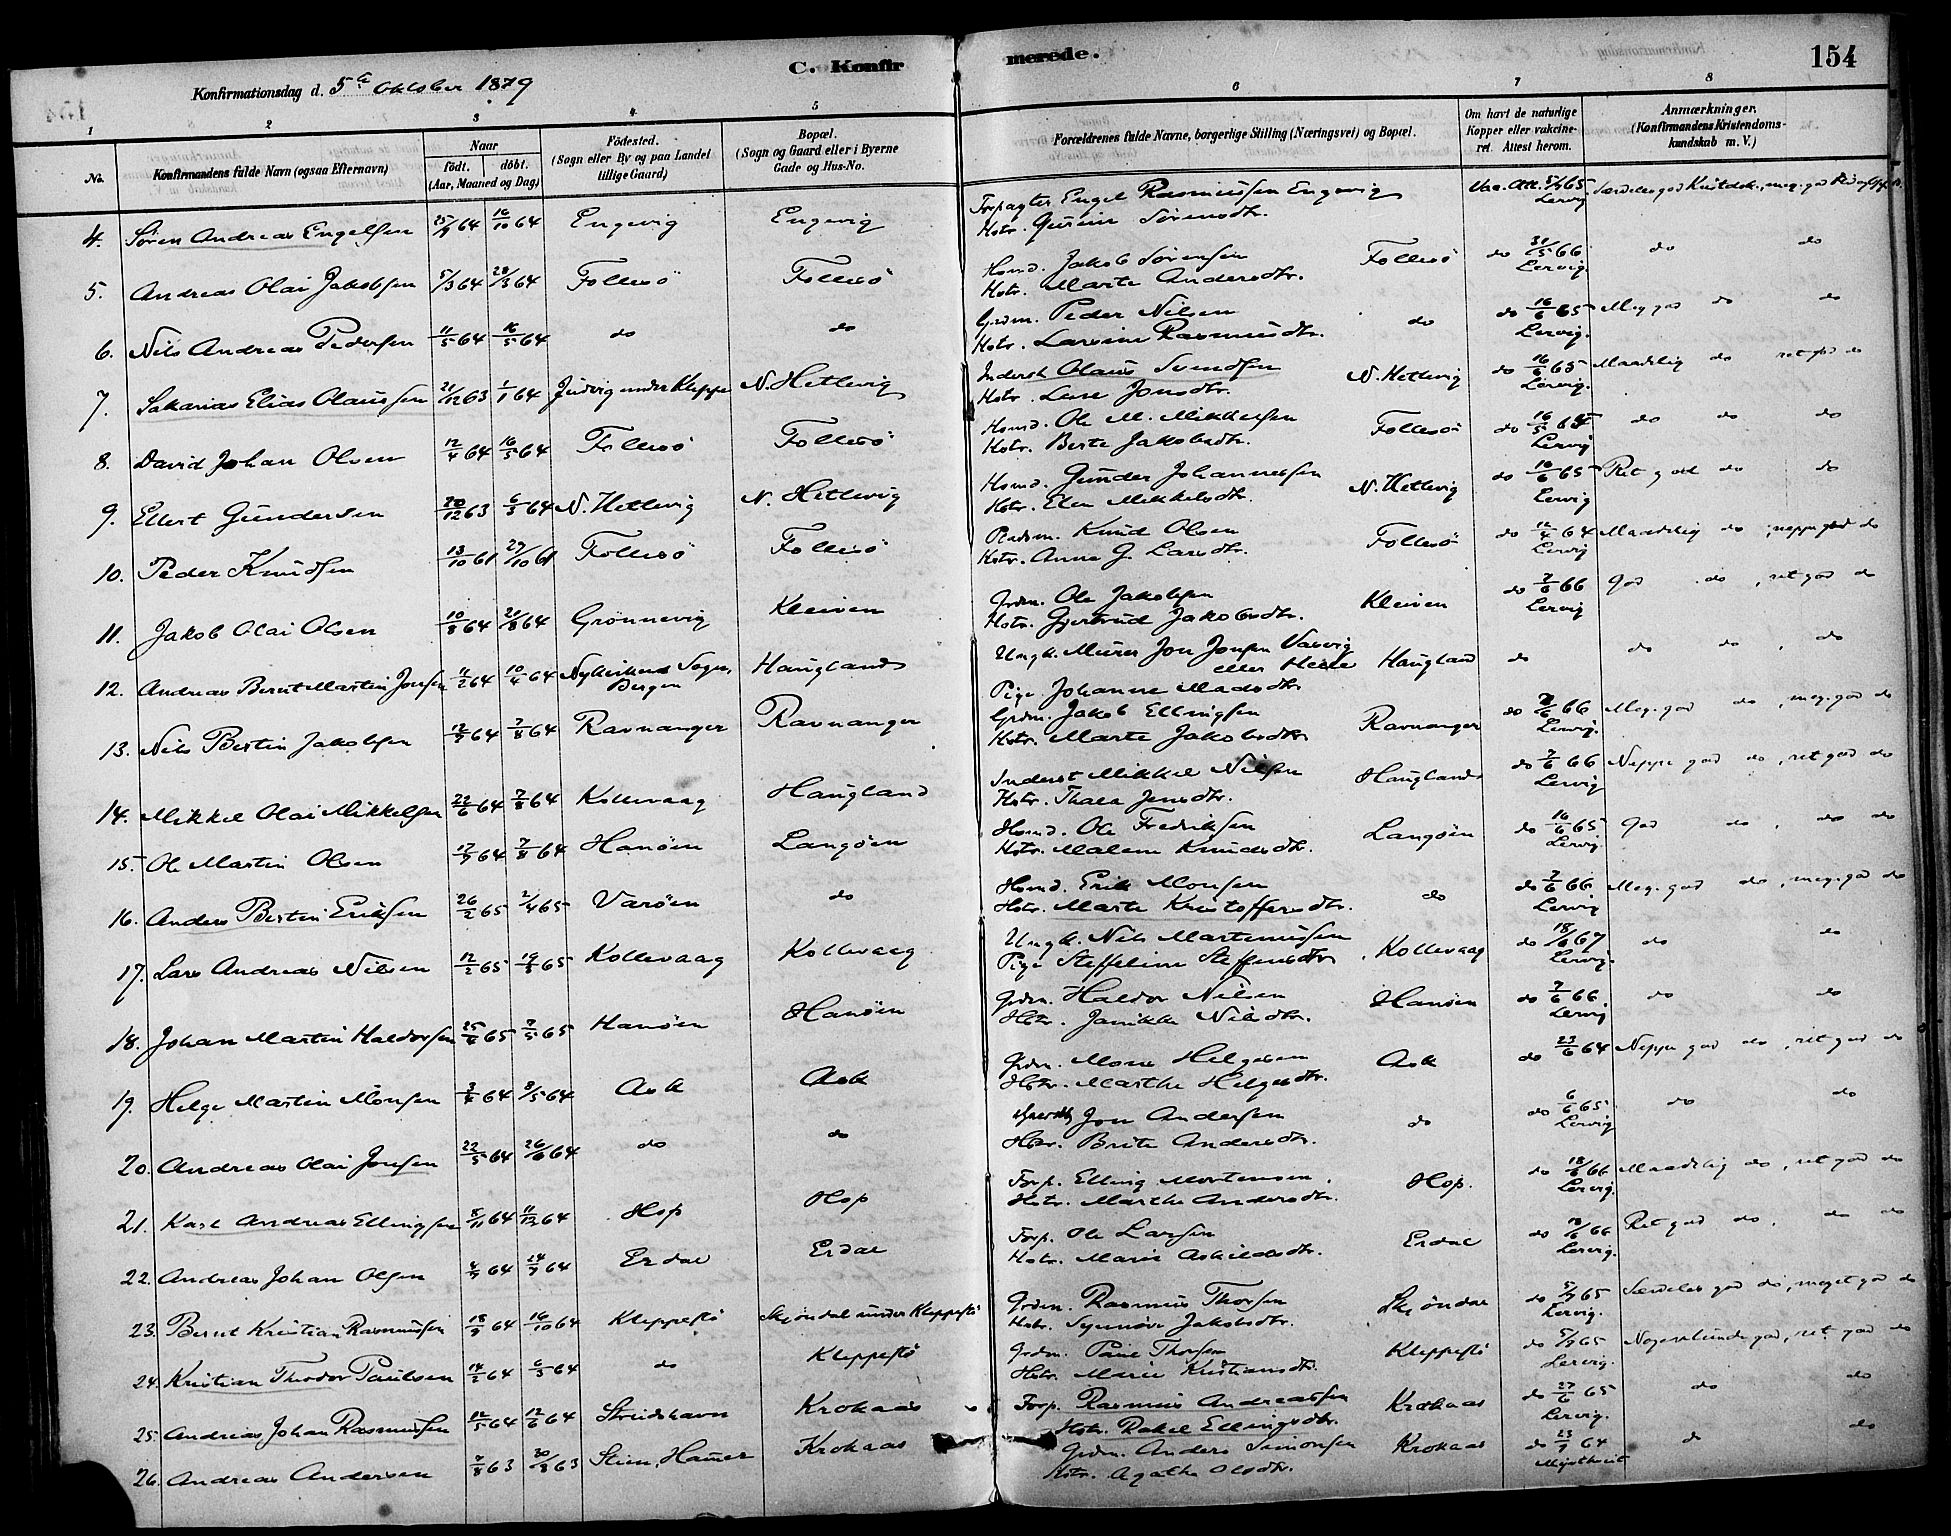 C. Konfirmerede.
154
Konfirmationsdag d. 5te Oktober 1879
1 2 3 4 5 6 7 8
No. Konfirmandens fulde Navn (ogsaa Efternavn) Naar födt. döbt. (Aar, Maaned og Dag) Födested. (Sogn eller By og paa Landet tillige Gaard) Bopæl. (Sogn og Gaard eller i Byerne Gade og Hus-No. Forældrenes fulde Navne, borgerlige Stilling (Næringsvei) og Bopæl. Om havt de naturlige Kopper eller vakcineret. Attest herom. Anmærkninger. (Konfirmandens Kristendomskundskab m. V.)
4. Søren Andreas Engelsen 25/9 64 16/10 64 Engevig Engevig Forpagter Engel Rasmussen Engevig Vac. Att. 5/9 65 Lervig
Hstr. Gurine Sørensdtr.
5. Andreas Olai Jakobsen 5/3 64 28/3 64 Follesö Follesö Hsmd. Jakob Sørensen Follesö do 31/5 66 Lervig do do
Hstr. Marte Andersdtr.
6. Nils Andreas Pedersen 11/5 64 16/5 64 do do Grdm. Peder Nilsen do do 16/6 65 Lervig. Meg god do do
Hstr. Larsine Rasmusdtr.
7. Sakarias Elias Olaussen 21/12 63 1/1 64 Judvig under Kleppe N. Hetlevig Inderst Olaus Svendsen N. Hetlevig do 16/6 65 Lervig. Maadelig do ret god do
Hstr. Lave Jonsdtr.
8. David Johan Olsen 12/4 64 16/5 64 Follesö Follesö Hsmd. Ole M. Mikkelsen Follesö do 16/5 65 Lervig do do do
Hstr. Berte Jakobsdtr.
9. Ellert Gundersen 20/12 63 6/3 64 N. Hetlevig N. Hetlevig Hsmd. Gunder Johannessen N. Hetlevig do 16/6 65 Lervig Ret god do do
Hstr. Elen Mikkelsdtr.
10. Peder Knudsen 13/10 61 27/10 61 Follesö Follesö Pladsm. Knud Olsen Follesö do 12/4 64 Lervig Maadelig do, neppe god do
Hstr. Anna G. Larsdtr.
11. Jakob Olai Olsen 10/8 64 21/8 64 Grönnevig Kleiven Grdm. Ole Jakobsen Kleiven do 7/6 66 Lervig God do, ret god do
Hstr. Gjertrud Jakobsdtr.
12. Andreas Bernt Martin Jonsen 11/2 64 10/4 64 Nykirkens Sogn, Bergen Haugland Ungk. Murer Jon Jonsen Varvig eller Helle Haugland do do do, do
Pige Johanne Madsdtr.
13. Nils Bertin Jakobsen 12/7 64 7/8 64 Ravnanger Ravnanger Grdm. Jakob Ellingsen Ravnanger do 7/6 66 Lervig. Meg. god do, meg. god do
Hstr. Marte Jakobsdtr.
14. Mikkel Olai Mikkelsen 22/6 64 7/8 64 Kollevaag Haugland Inderst Mikkel Nilsen Haugland do 7/6 66 Lervig Neppe god do, ret god do
Hstr. Thala Jensdtr.
15. Ole Martin Olsen 17/7 64 7/8 64 Hanöen Langöen Hsmd. Ole Fredriksen Langöen do 16/6 65 Lervig. God do, do do
Hstr. Malene Knudsdtr.
16. Anders Bertin Eriksen 26/2 65 2/4 65 Varöen do Hsmd. Erik Monsen do do 7/6 66 Lervig Meg. god do, meg. god do
Hstr. Marte Kristoffersdtr.
17. Lars Andreas Nilsen 12/2 65 19/3 65 Kollevaag Kollevaag Ungk. Nils Martinussen Kollevaag do 18/6 67 Lervig. do do
Pige Steffeline Steffensdtr.
18. Johan Martin Haldorsen 25/4 65 7/5 65 Hanöen Hanöen Grdm. Haldor Nilsen Hanöen do 7/6 66. Lervig do do
Hstr. Janikke Nilsdtr.
19. Helge Martin Monsen 3/4 64 8/5 64 Ask Ask Grdm. Mons Helgesen Ask do 23/6 64 Neppe god do, ret god do
Hstr. Marthe Helgesdtr.
20. Andreas Olai Jonsen 22/5 64 26/6 64 do do Jon Andersen do do 6/6 65. Lervig do do
Hstr. Brite Andersdtr.
21. Karl Andreas Ellingsen 5/11 64 11/12 64 Hop Hop Forp. Elling Mortensen. Hop. do 18/6 66 Lervig. Maadelig do, ret god do
Hstr. Marthe Andersdtr.
22. Andreas Johan Olsen 4/7 64 24/7 64 Erdal Erdal Forp. Ole Larsen Erdal do 18/6 66 Lervig. Ret god do, do do
Hstr. Marie Askildsdtr.
23. Bernt Kristian Rasmussen 18/9 64 16/10 64 Kleppestö Skjöndal under Kleppestö Grdm. Rasmus Thorsen Skjöndal do 5/9 65 Lervig. Særdeles god do, meget god do
Hstr. Synnöve Jakobsdtr.
24. Kristian Theodor Paulsen 14/2 64 6/3 64 do Kleppestö Grdm. Paul Thorsen Kleppestö do 5/9 65 Lervig. Nogenlunde god, ret god do
Hstr. Marie Kristiansdtr.
25. Andreas Johan Rasmussen 12/5 64 12/6 64 Strudshavn Krokaas Forp. Rasmus Andreassen Krokaas do 27/6 65 Lervig. do do
Hstr. Rakel Ellingsdtr.
26. Andreas Andersen 7/8 63 30/8 63 Stien, Hammer Krokaas Grdm. Anders Simonsen Krokaas do 23/9 64 do do
Hstr. Agathe Olsdtr.